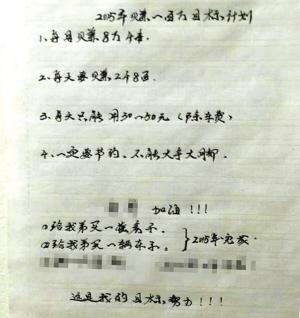 2015年赚一百万目标计划
1、每月赚8万4千.
2、每天要赚248百.
3、每天只能用30～50元(除车费)
4、一定要节约、不能大手大脚.
加油!!!
①给我弟买一套房子.
②给我弟买一辆车子。
2015年完成.
这是我的目标努力!!!